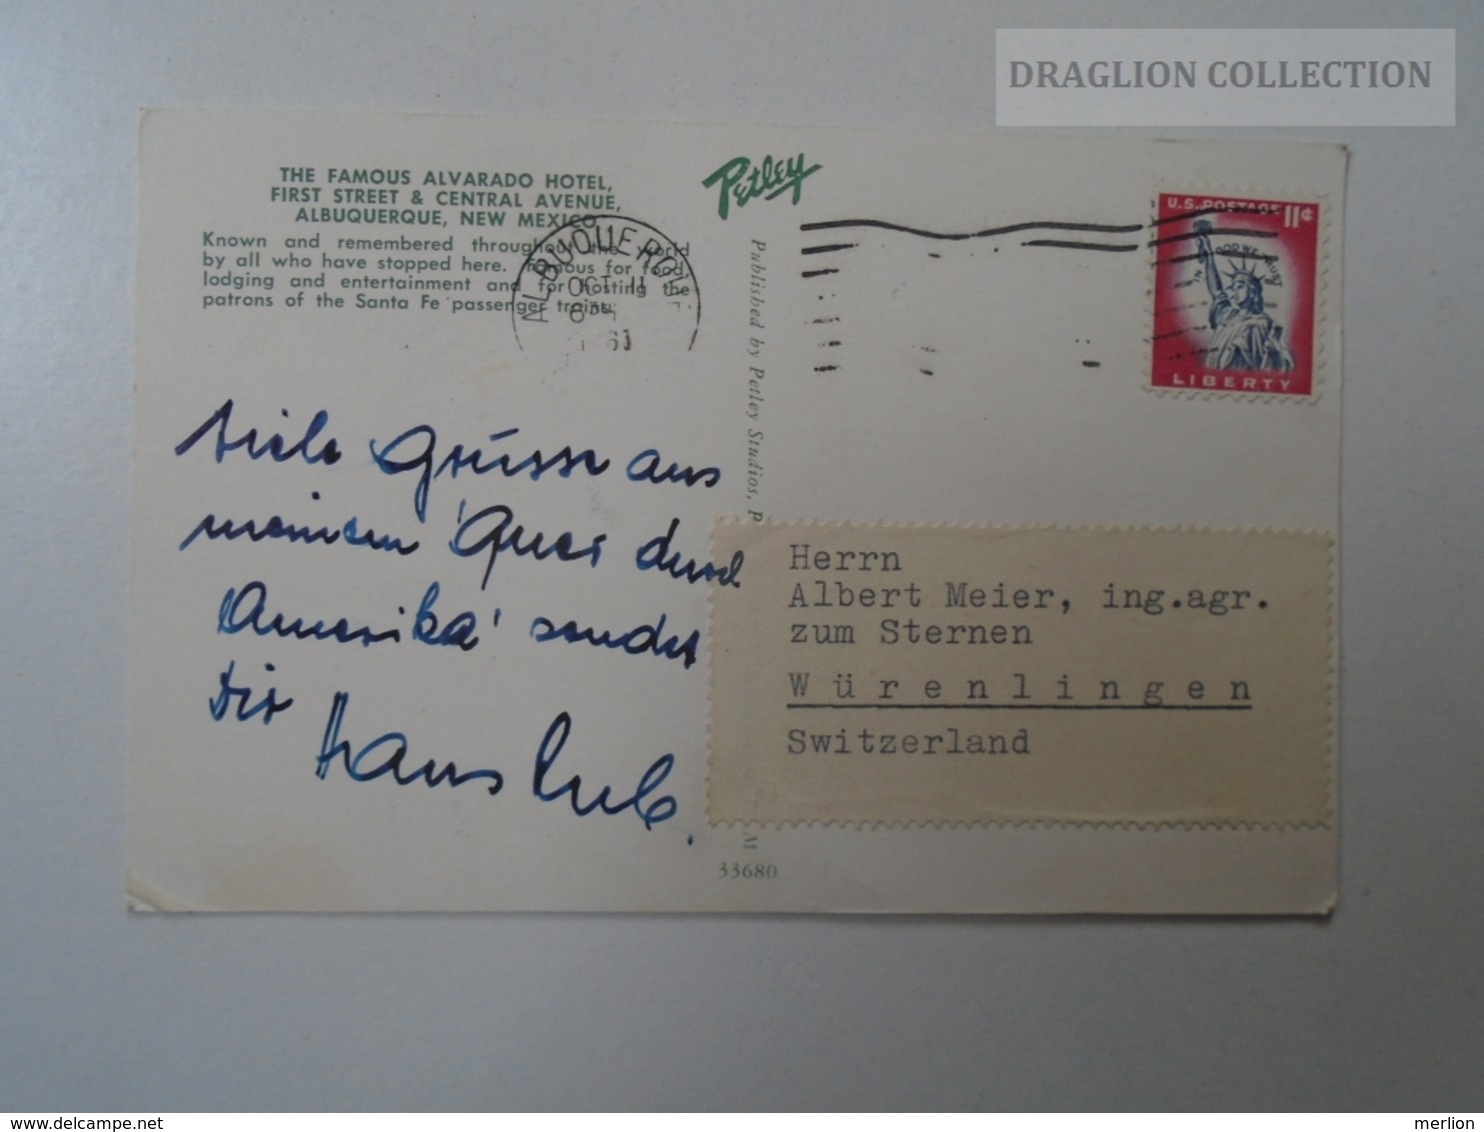 DRAGLION COLLECTION
THE FAMOUS ALVARADO HOTEL,
FIRST STREET & CENTRAL AVENUE,
ALBUQUERQUE, NEW MEXICO
Known and remembered throughout the world
by all who have stopped here. Famous for food,
lodging and entertainment and for hosting the
patrons of the Santa Fe passenger trains.
Petley
ALBUQUERQU
OCT 11
U.S. POSTAGE 11¢
IN GOD WE TRUST
LIBERTY
Published by Petley Studios, P
viele Grüsse aus
meinem 'Quer durch
Amerika' sendet
Dir
Hans
Herrn
Albert Meier, ing.agr.
zum Sternen
Würenlingen
Switzerland
M
33680
delcampe.net
merlion